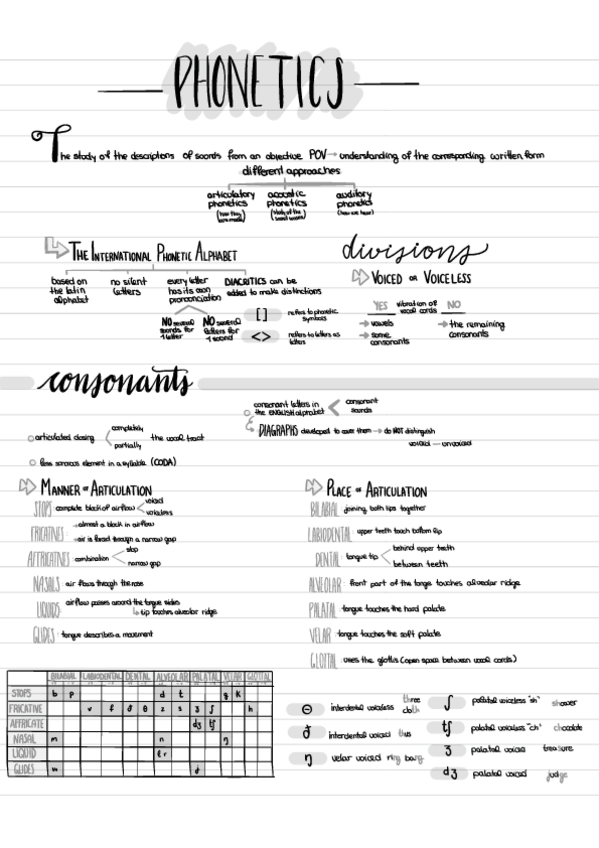 PHONETICS
The study of the descriptions of sounds from an objective POV → understanding of the corresponding written form
different approaches
articulatory phonetics (how they are made)
acoustic phonetics (study of the sound waves)
auditory phonetics (how we hear)
THE INTERNATIONAL PHONETIC ALPHABET
based on the latin alphabet
no silent letters
every letter has its own pronounciation
NO several sounds for 1 letter
NO several letters for 1 sound
DIACRITICS can be added to make distinctions
[ ] refers to phonetic symbols
<> refers to letters as letters
divisions
VOICED OR VOICELESS
YES vibration of vocal cords NO
→ vowels
→ some consonants
→ the remaining consonants
consonants
articulated closing < completely partially the vocal tract
less sonorous element in a syllable (CODA)
consonant letters in the ENGLISH alphabet < consonant sounds
DIAGRAPHS developed to cover them → do NOT distinguish
voiced — unvoiced
MANNER OF ARTICULATION
STOPS: complete block of airflow < voiced voiceless
FRICATIVES: → almost a block in airflow
→ air is forced through a narrow gap
AFFRICATIVES combination < stop narrow gap
NASALS: air flows through the nose
LIQUIDS: airflow passes around the tongue sides
↳ tip touches alveolar ridge
GLIDES: tongue describes a movement
PLACE OF ARTICULATION
BILABIAL: joining both lips together
LABIODENTAL: upper teeth touch bottom lip
DENTAL: tongue tip < behind upper teeth between teeth
ALVEOLAR: front part of the tonge touches alveolar ridge
PALATAL: tongue touches the hard palate
VELAR: tongue touches the soft palate
GLOTTAL: uses the glottis (open space between vocal cords)
BILABIAL LABIODENTAL DENTAL ALVEOLAR PALATAL VELAR GLOTTAL
STOPS b p d t g k
FRICATIVE v f ð θ z s ʒ ʃ h
AFFRICATE dʒ tʃ
NASAL m n ŋ
LIQUID l r
GLIDES w j
θ interdental voiceless three cloth
ð interdental voiced this
ŋ velar voiced ring bang
ʃ palatal voiceless "sh" shower
tʃ palatal voiceless "ch" chocolate
ʒ palatal voiced treasure
dʒ palatal voiced judge